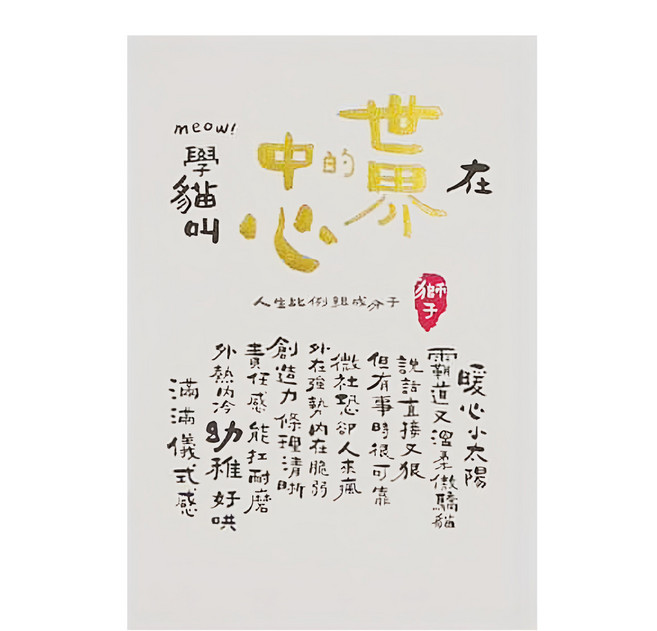 在
世界
的
中心
meow!
學貓叫
人生比例組成分子
獅子
暖心小太陽
霸道又溫柔傲驕貓
說話直接又狠
但有事時很可靠
微社恐卻人來瘋
外在強勢內在脆弱
創造力 條理清晰
責任感 能扛耐磨
外熱內冷 幼稚好哄
滿滿儀式感